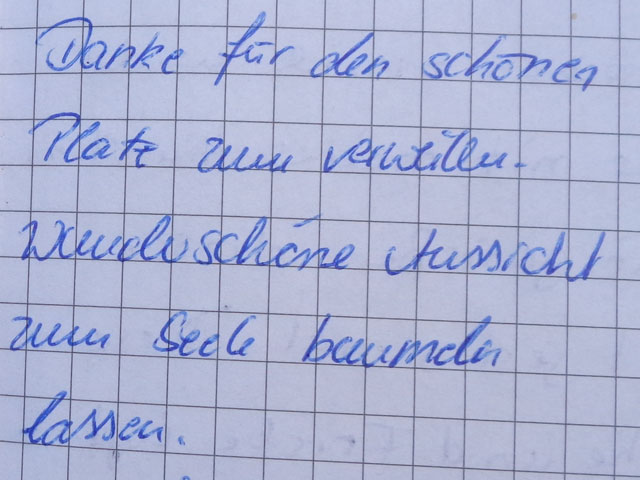 Danke für den schönen
Platz zum verweilen.
Wunderschöne Aussicht
zum Seele baumeln
lassen.